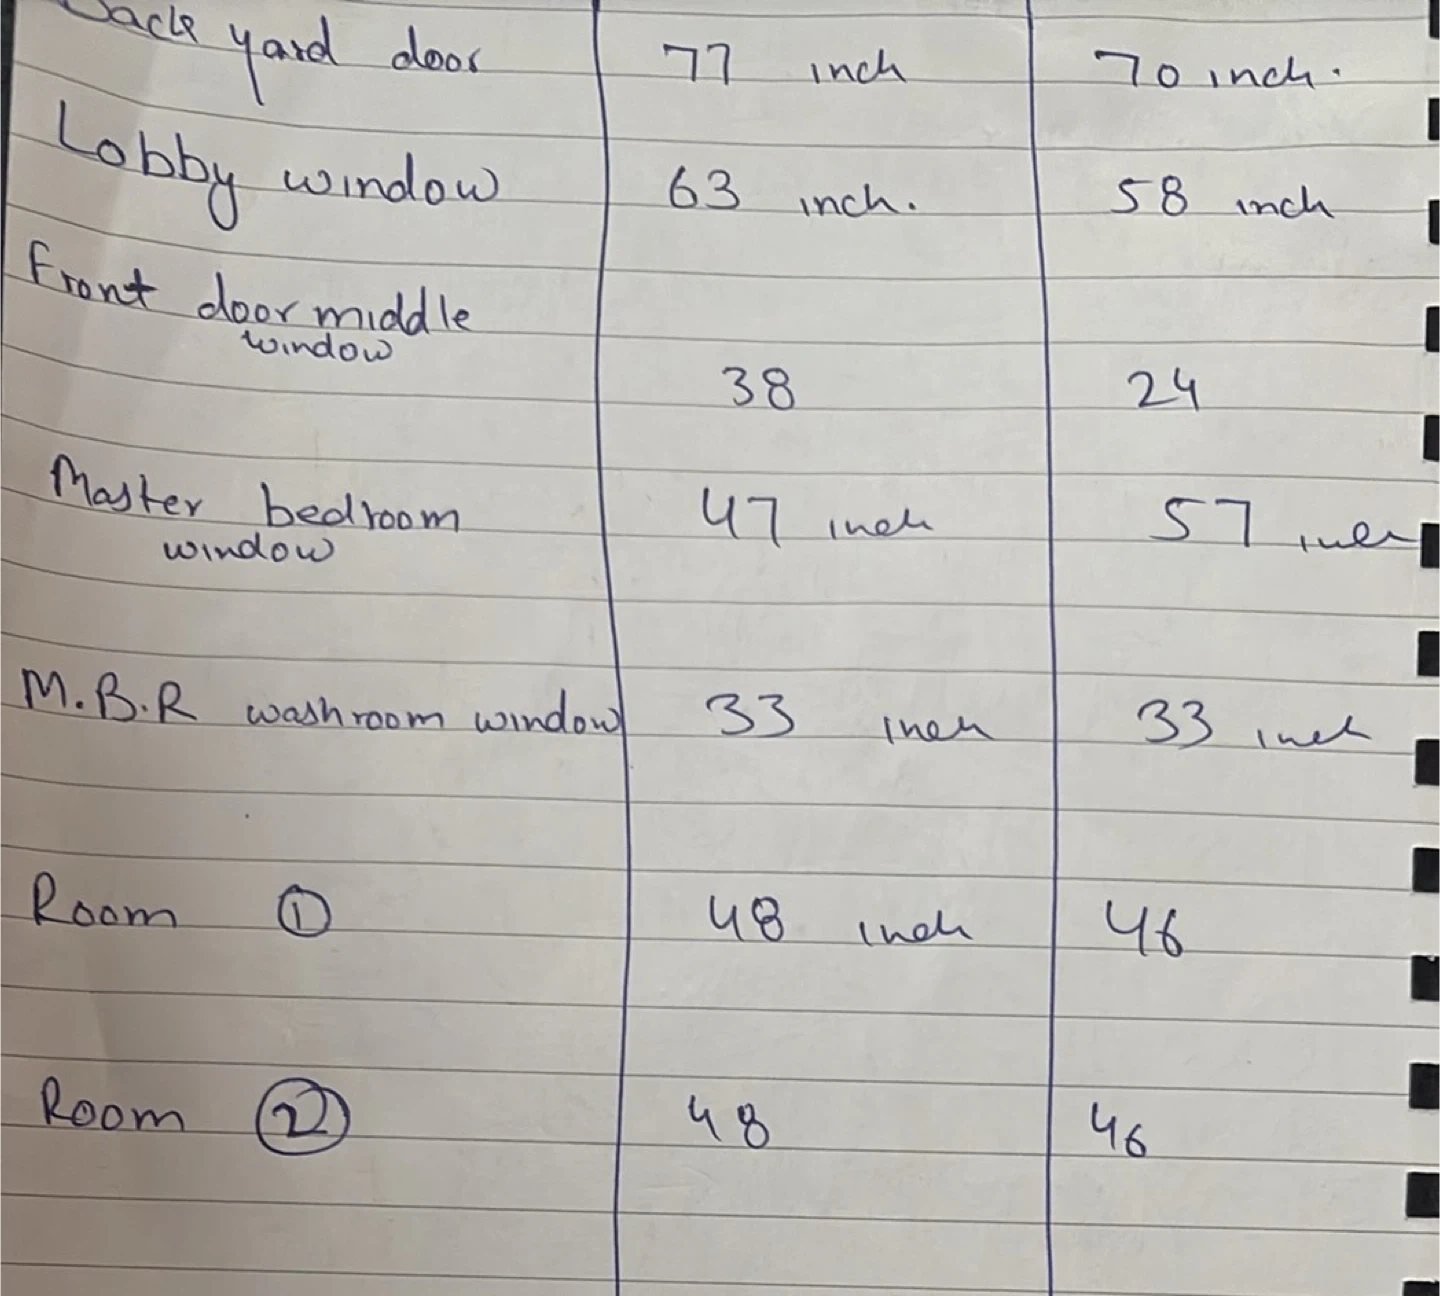 Back yard door 77 inch 70 inch.
Lobby window 63 inch. 58 inch
Front door middle
window
38 24
Master bedroom 47 inch 57 inch
window
M.B.R washroom window 33 inch 33 inch
Room ① 48 inch 46
Room ② 48 46